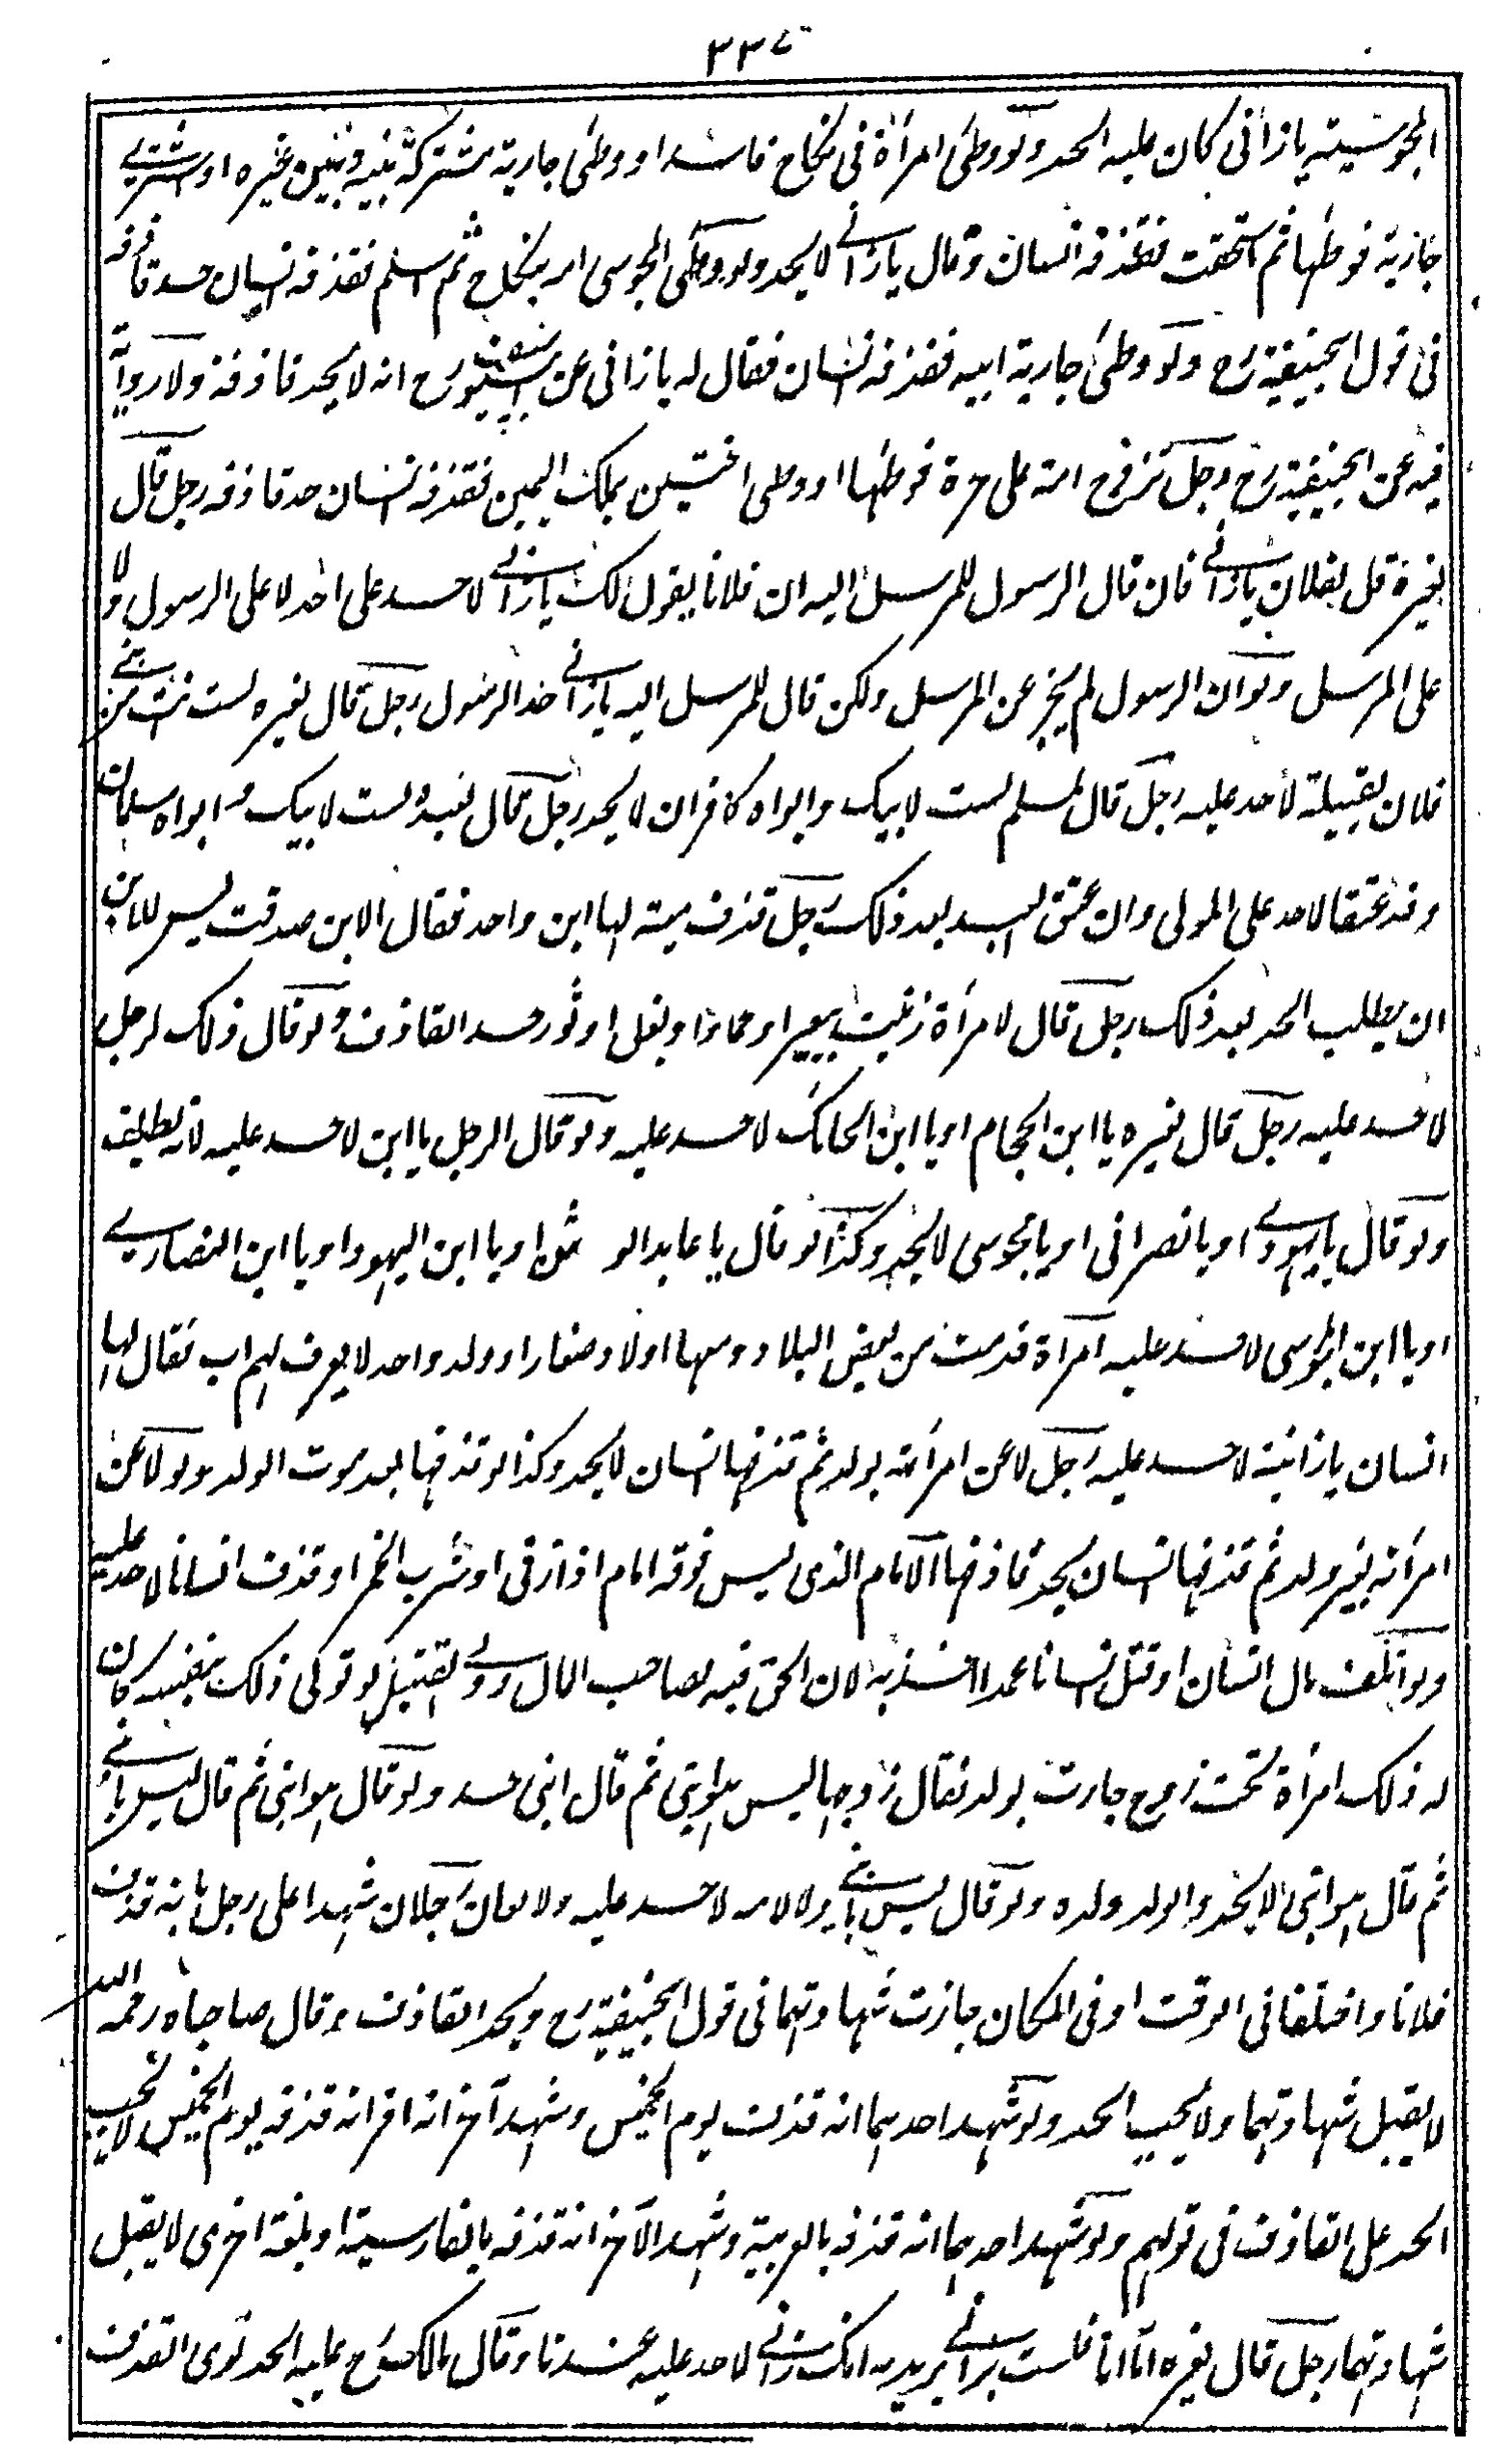 ٣٣٧
المجوسية يا زانى كان عليه الحد ولو وطئ امرأة فى نكاح فاسد او وطئ جارية مشتركة بينه وبين غيره او اشترى
جارية فوطئها ثم استحقت فقذفه انسان وقال يا زانى لا يحد ولو وطئ المجوسى امه بنكاح ثم اسلم فقذفه انسان حد قاذفه
فى قول ابيحنيفة رح ولو وطئ جارية ابيه فقذفه انسان فقال له يا زانى عن ابى يوسف رح انه لا يحد قاذفه ولا رواية
فيه عن ابيحنيفة رح رجل تزوج امة على حرة فوطئها او وطى اختين بملك اليمين فقذفه انسان حد قاذفه رجل قال
لغيره قل لفلان يا زانى فان قال الرسول للمرسل اليه ان فلانا يقول لك يا زانى لا حد على احد لا على الرسول ولا
على المرسل ولو ان الرسول لم يخبر عن المرسل ولكن قال للمرسل اليه يا زانى حد الرسول رجل قال لغيره لست انت من بنى
فلان لقبيلة لا حد عليه رجل قال لمسلم لست لابيك وابواه كافران لا يحد رجل قال لعبده لست لابيك وابواه مسلمان
وقد عتقا لا حد على المولى وان عتق العبد بعد ذلك رجل قذف ميتة لها ابن واحد فقال الابن صدقت ليس للابن
ان يطلب الحد بعد ذلك رجل قال لامرأة زنيت ببعير او حمار او بغل او ثور حد القاذف ولو قال ذلك لرجل
لا حد عليه رجل قال لغيره يا ابن الحجام او يا ابن الحائك لا حد عليه ولو قال الرجل يا ابن لا حد عليه لانه تطليف
ولو قال يا يهودى او يا نصرانى او يا مجوسى لا يحد وكذا لو قال يا عابد الوثن او يا ابن اليهود او يا ابن النصارى
او يا ابن المجوسى لا حد عليه امرأة قدمت من بعض البلاد ومعها اولاد صغار او ولد واحد لا يعرف لهم اب فقال لها
انسان يا زانية لا حد عليه رجل لاعن امرأته بولد ثم قذفها انسان لا يحد وكذا لو قذفها بعد موت الولد ولو لاعن
امرأته بغير ولد ثم قذفها انسان يحد قاذفها الامام الذى ليس فوقه امام اذا زنى او شرب الخمر او قذف انسانا لا حد عليه
ولو اتلف مال انسان او قتل انسانا عمدا اخذ به لان الحق فيه لصاحب المال وولى القتيل لو تولى ذلك بنفسه كان
له ذلك امرأة تحت زوج جاءت بولد فقال زوجها ليس هو ابنى ثم قال ابنى حد ولو قال هو ابنى ثم قال ليس بابنى
ثم قال هو ابنى لا يحد والولد ولده ولو قال ليس بابنى ولا لامه لا حد عليه ولا لعان رجلان شهدا على رجل بانه قذف
فلانا واختلفا فى الوقت او فى المكان جازت شهادتهما فى قول ابيحنيفة رح ويحد القاذف وقال صاحباه رحمه الله
لا يقبل شهادتهما ولا يجب الحد ولو شهد احدهما انه قذف يوم الخميس وشهد آخر انه اقر انه قذفه يوم الخميس لا يجب
الحد على القاذف فى قولهم ولو شهد احدهما انه قذفه بالعربية وشهد الآخر انه قذفه بالفارسية او بلغة اخرى لا يقبل
شهادتهما رجل قال لغيره اما انا فلست بزانى يريد به انك زانى لا حد عليه عندنا وقال مالك رح عليه الحد نوى القذف